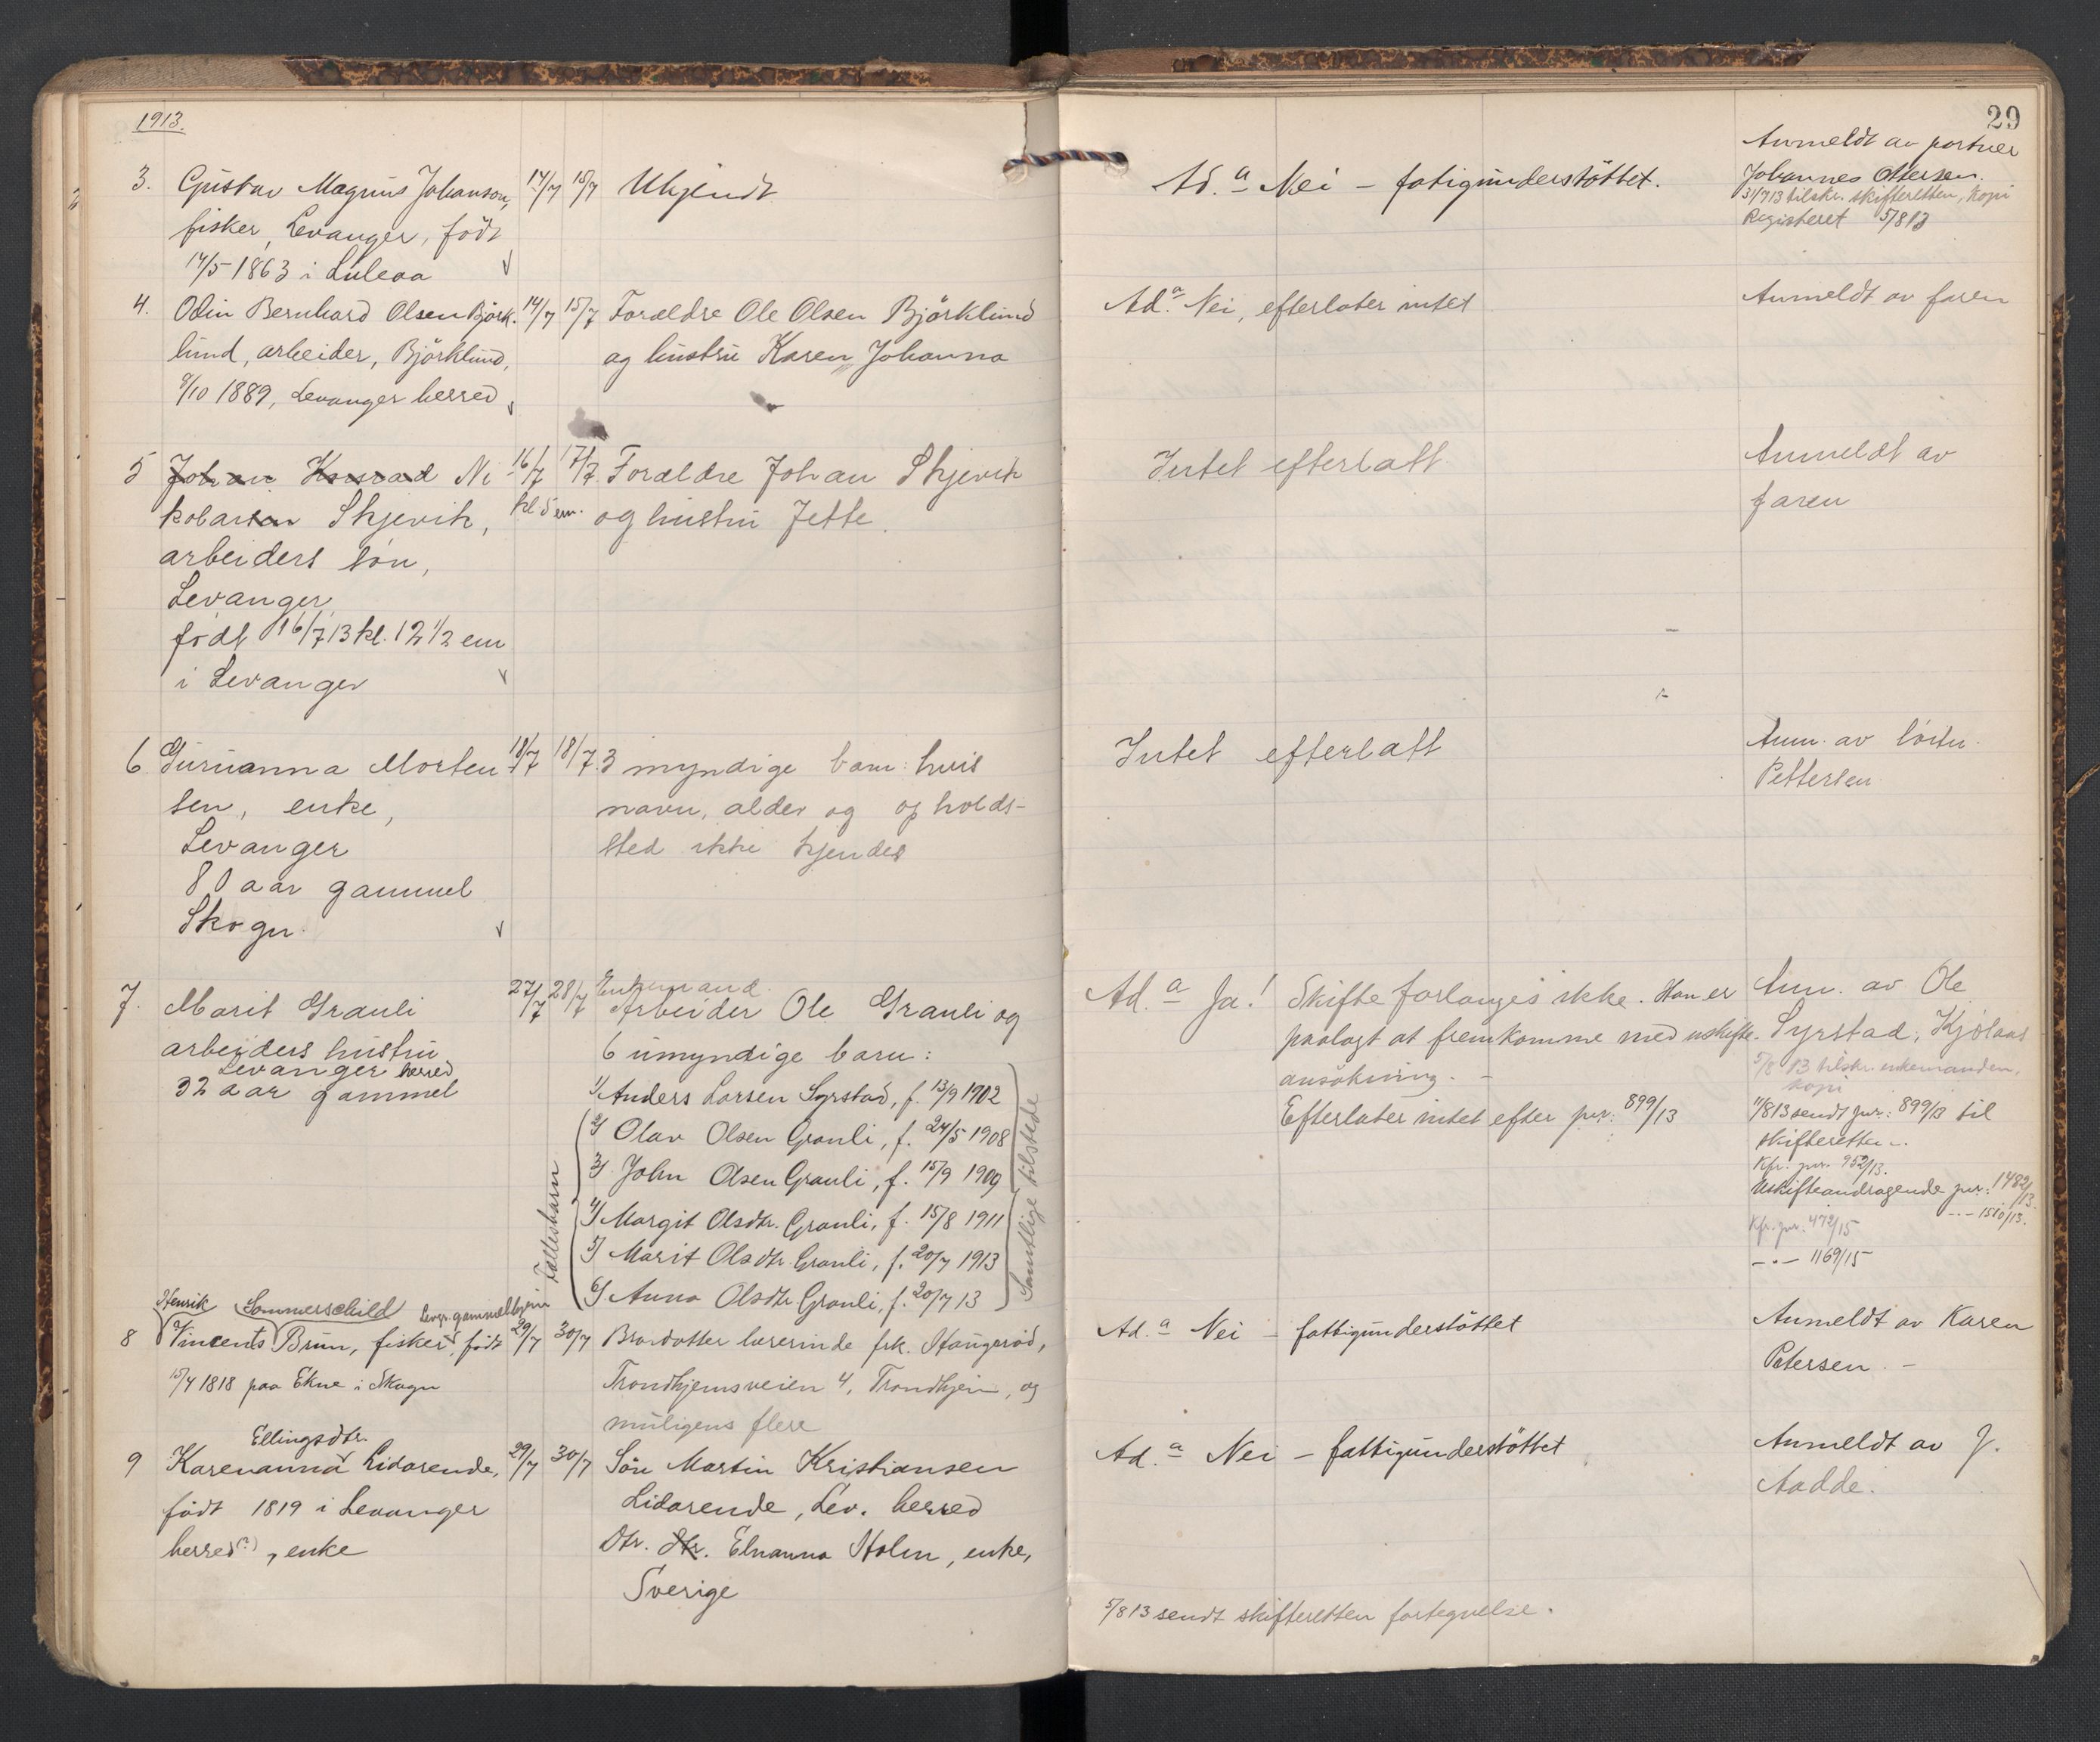 1913.
3. Gustav Magnus Johanson, 14/7 15/7 Ukjendt
fisker, Levanger, född
14/5 1863 i Luleaa
4. Odin Bernhard Olsen Björk- 14/7 15/7 Forældre Ole Olsen Björklund
lund, arbeider, Björklund, og hustru Karen Johanna
8/10 1889, Levanger herred
5 Johan Konrad Ni- 16/7 17/7 Forældre Johan Skjevik
kolaisen Skjevik, kl 5 em. og hustru Jette.
arbeiders sön,
Levanger,
född 16/7 13 kl. 12 1/2 em
i Levanger
6 Gurianna Morten- 18/7 18/7. 3 myndige barn: hvis
sen, enke, navn, alder og opholds-
Levanger sted ikke kjendes
80 aar gammel
Skogn
7. Marit Grauli 27/7 28/7 Enkemand.
Arbeider Ole Grauli og
arbeiders hustru 6 umyndige barn:
Levanger herred
32 aar gammel
1) Anders Larsen Syrstad, f. 13/9 1902
2) Olav Olsen Grauli, f. 24/5 1908
3) John Olsen Grauli, f. 15/9 1909
4) Margit Olsdtr. Grauli, f. 15/8 1911
5) Marit Olsdtr. Grauli, f. 20/7 1913
6) Anna Olsdtr. Grauli, f. 20/7 13
Fællesbarn
Samtlige tilstede
Henrik Sommerschild Levgr. gammelhjem
8 Vincents Brun, fisker, född 29/7 30/7 Brordatter lærerinde frk. Haugeröd,
15/4 1818 paa Ekne i Skogn Trondhjemsveien 4, Trondhjem, og
muligens flere
Ellingsdtr.
9 Karenanna Lidarende, 29/7 30/7 Sön Martin Kristiansen
född 1819 i Levanger Lidarende, Lev. herred
herred(?), enke Dtr. dtr. Elnanna Holm, enke,
Sverige
29
Ad. a Nei – fatigunderstöttet. Anmeldt av portner
Johannes Ottersen.
31/7 13 tilskr. skifteretten, kopi
Registeret 5/8 13
Ad. a Nei, efterlater intet Anmeldt av faren
Intet efterlatt Anmeldt av
faren
Intet efterlatt Anm. av löitn.
Pettersen
Ad. a Ja! Skifte forlanges ikke. Han er Anm. av Ole
paalagt at fremkomme med uskifte- Syrstad, Kjölaas
ansökning. – 5/8 13 tilskr. enkemanden,
kopi
Efterlater intet efter jnr. 899/13 11/8 13 sendt jnr.: 899/13 til
skifteretten.
Kfr. jnr. 952/13.
Uskifteandragende jnr. 1482/13
– - – 1510/13.
Kfr. jnr. 472/15
– - – 1169/15
Ad. a Nei – fattigunderstöttet Anmeldt av Karen
Petersen. –
Ad. a Nei – fattigunderstöttet Anmeldt av J.
Aadde.
5/8 13 sendt skifteretten fortegnelse.